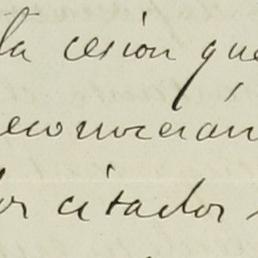 ta cesion que
econocieran
os citados